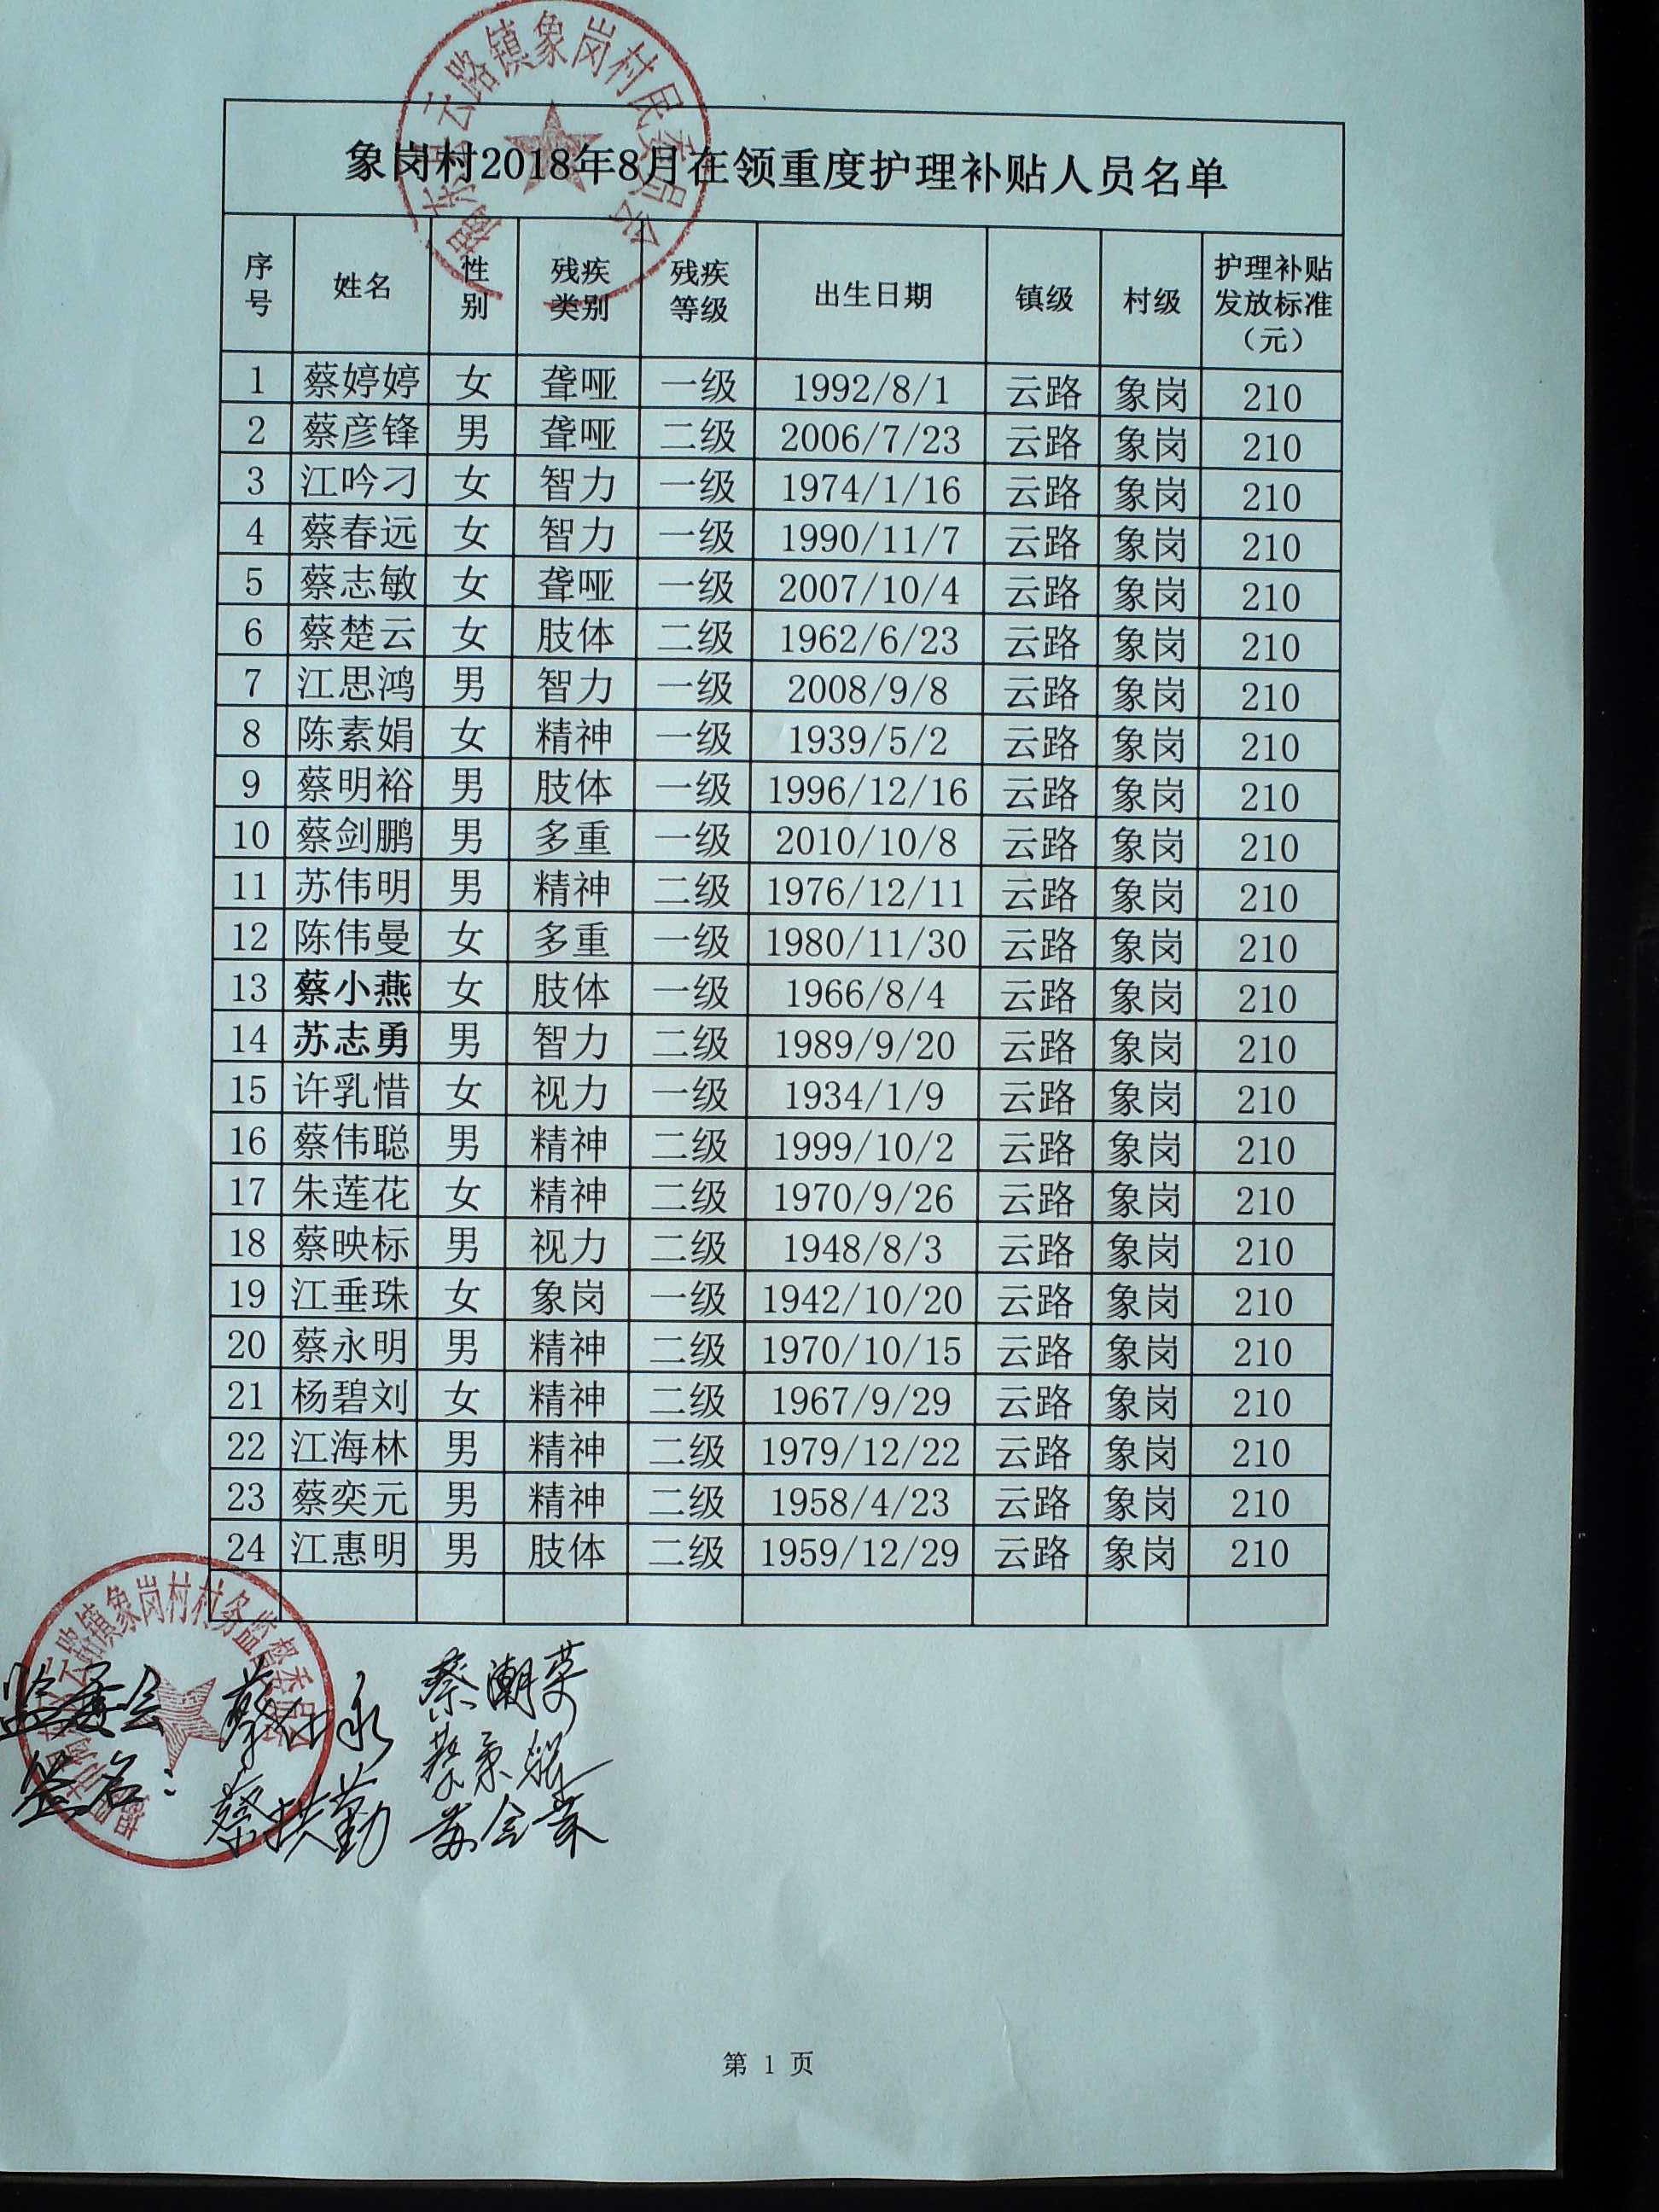 云路镇象岗村民委员会
象岗村2018年8月在领重度护理补贴人员名单
序号 姓名 性别 残疾类别 残疾等级 出生日期 镇级 村级 护理补贴发放标准（元）
1 蔡婷婷 女 聋哑 一级 1992/8/1 云路 象岗 210
2 蔡彦锋 男 聋哑 二级 2006/7/23 云路 象岗 210
3 江吟刁 女 智力 一级 1974/1/16 云路 象岗 210
4 蔡春远 女 智力 一级 1990/11/7 云路 象岗 210
5 蔡志敏 女 聋哑 一级 2007/10/4 云路 象岗 210
6 蔡楚云 女 肢体 二级 1962/6/23 云路 象岗 210
7 江思鸿 男 智力 一级 2008/9/8 云路 象岗 210
8 陈素娟 女 精神 一级 1939/5/2 云路 象岗 210
9 蔡明裕 男 肢体 一级 1996/12/16 云路 象岗 210
10 蔡剑鹏 男 多重 一级 2010/10/8 云路 象岗 210
11 苏伟明 男 精神 二级 1976/12/11 云路 象岗 210
12 陈伟曼 女 多重 一级 1980/11/30 云路 象岗 210
13 蔡小燕 女 肢体 一级 1966/8/4 云路 象岗 210
14 苏志勇 男 智力 二级 1989/9/20 云路 象岗 210
15 许乳惜 女 视力 一级 1934/1/9 云路 象岗 210
16 蔡伟聪 男 精神 二级 1999/10/2 云路 象岗 210
17 朱莲花 女 精神 二级 1970/9/26 云路 象岗 210
18 蔡映标 男 视力 二级 1948/8/3 云路 象岗 210
19 江垂珠 女 象岗 一级 1942/10/20 云路 象岗 210
20 蔡永明 男 精神 二级 1970/10/15 云路 象岗 210
21 杨碧刘 女 精神 二级 1967/9/29 云路 象岗 210
22 江海林 男 精神 二级 1979/12/22 云路 象岗 210
23 蔡奕元 男 精神 二级 1958/4/23 云路 象岗 210
24 江惠明 男 肢体 二级 1959/12/29 云路 象岗 210
云路镇象岗村村务监督委员会
监委会
蔡潮荣
签名：
蔡拱勤
第 1 页